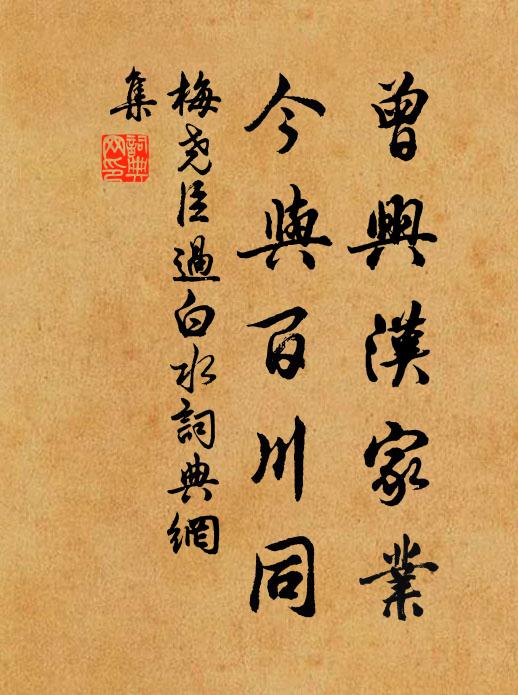 曾興漢家業
今與百川同
梅堯臣過白水詞典網
集
詞典網印